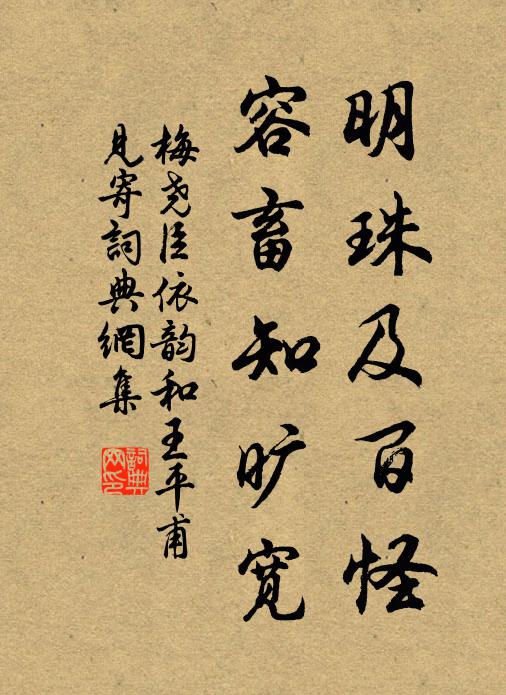 明珠及百怪
容畜知旷宽
梅尧臣依韵和王平甫
見寄詞典網集
詞典网印